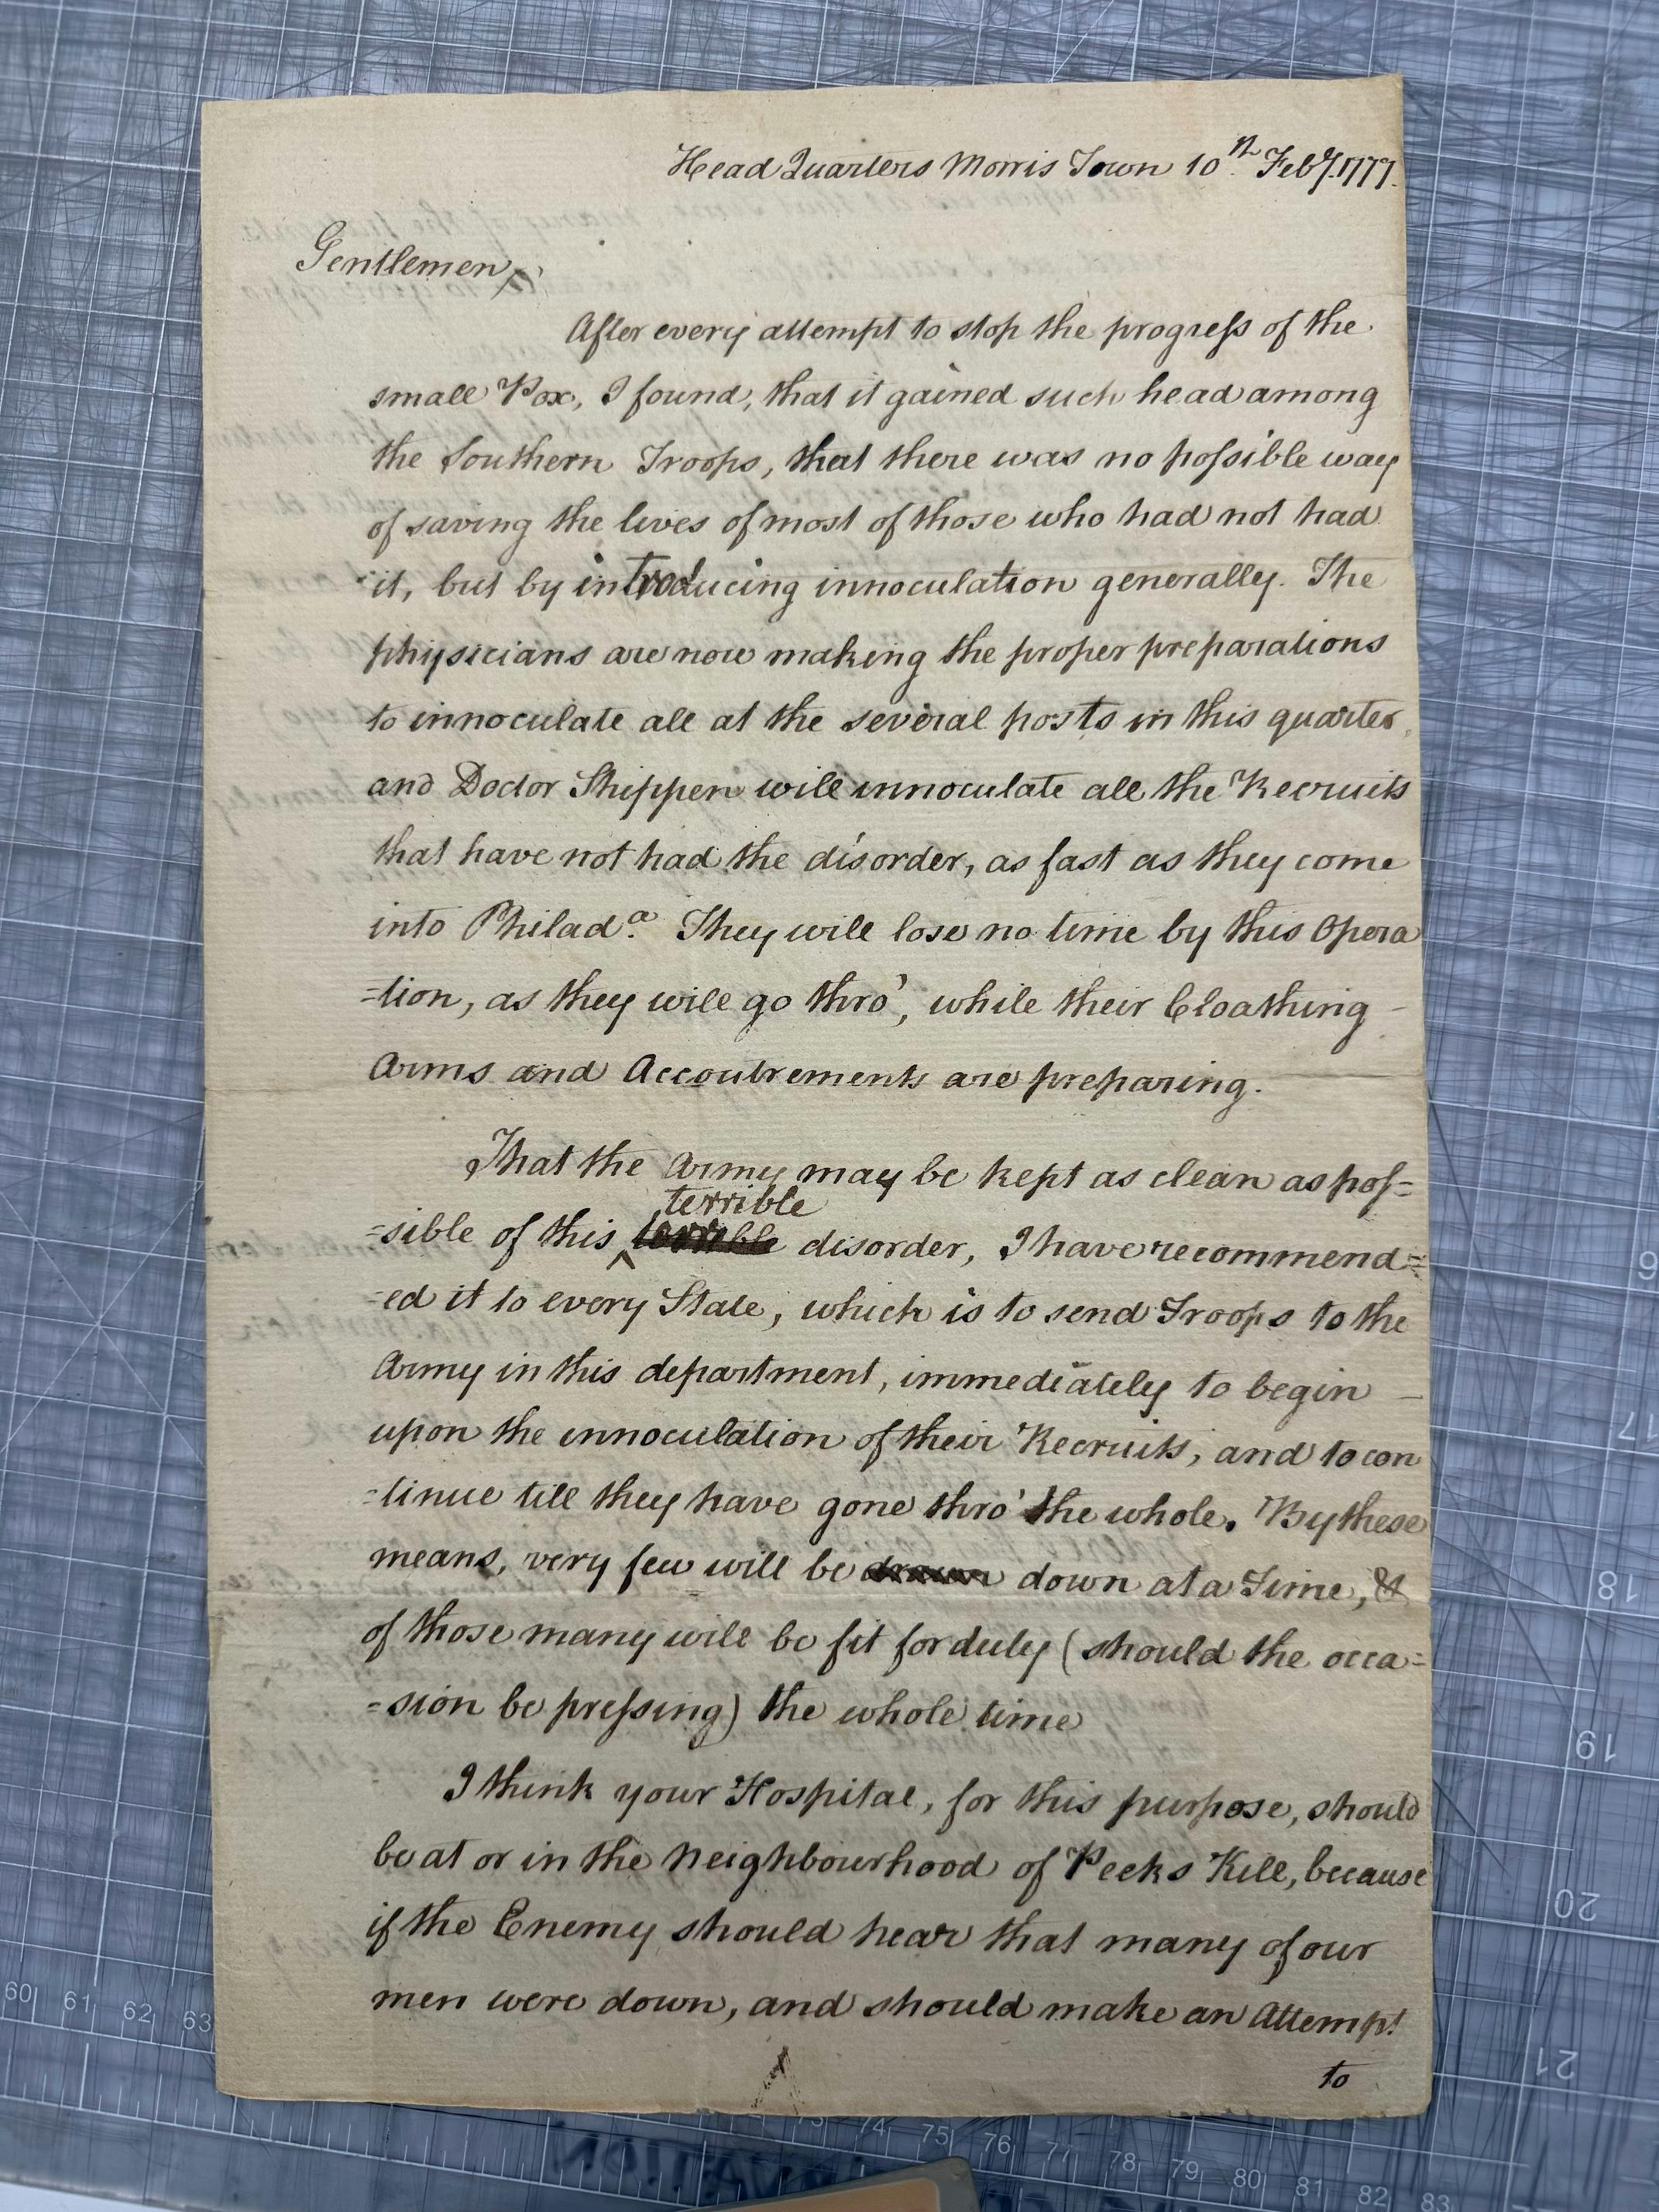 Head Quarters Morris Town 10th. Feby. 1777.
Gentlemen,
After every attempt to stop the progress of the
small Pox, I found, that it gained such head among
the Southern Troops, that there was no possible way
of saving the lives of most of those who had not had
it, but by introducing innoculation generally. The
physicians are now making the proper preparations
to innoculate all at the several posts in this quarter,
and Doctor Shippen will innoculate all the Recruits
that have not had the disorder, as fast as they come
into Philada. They will lose no time by this Opera
=tion, as they will go thro', while their Cloathing –
Arms and Accoutrements are preparing.
That the Army may be kept as clean as pos=
terrible
=sible of this terrible disorder, I have recommend=
=ed it to every State, which is to send Troops to the
Army in this department, immediately to begin –
upon the innoculation of their Recruits, and to con
=tinue till they have gone thro' the whole. By these
means, very few will be drawn down at a Time, &
of those many will be fit for duty (should the occa=
=sion be pressing) the whole time
I think your Hospital, for this purpose, should
be at or in the Neighbourhood of Peeks Kill, because
if the Enemy should hear that many of our
men were down, and should make an Attempt
to
6
17
18
19
20
21
60 61 62 63
73 74 75 76 77 78 79 80 81 82 83